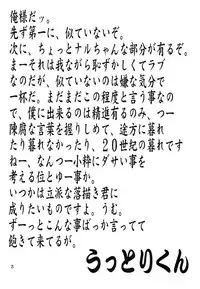 俺様だッ。
先ず第一に、似ていないぞ。
次に、ちょっとナルちゃんな部分が有るぞ。
まーそれは我ながら恥ずかしくてラブ
なのだが、似ていないのは嫌な気分で
一杯だ。まだまだこの程度と言う事なの
で、僕に出来るのは精進有るのみ、つー
陳腐な言葉を握りしめて、途方に暮れ
たり暮れなかったり、20世紀の暮れです
ねー、なんつー小粋にダサい事を
考える位とゆーか。
いつかは立派な落描き君に
成りたいものですよ。うむ。
ずーっとこんな事ばっか言ってて
飽きて来てるが。
うっとりくん